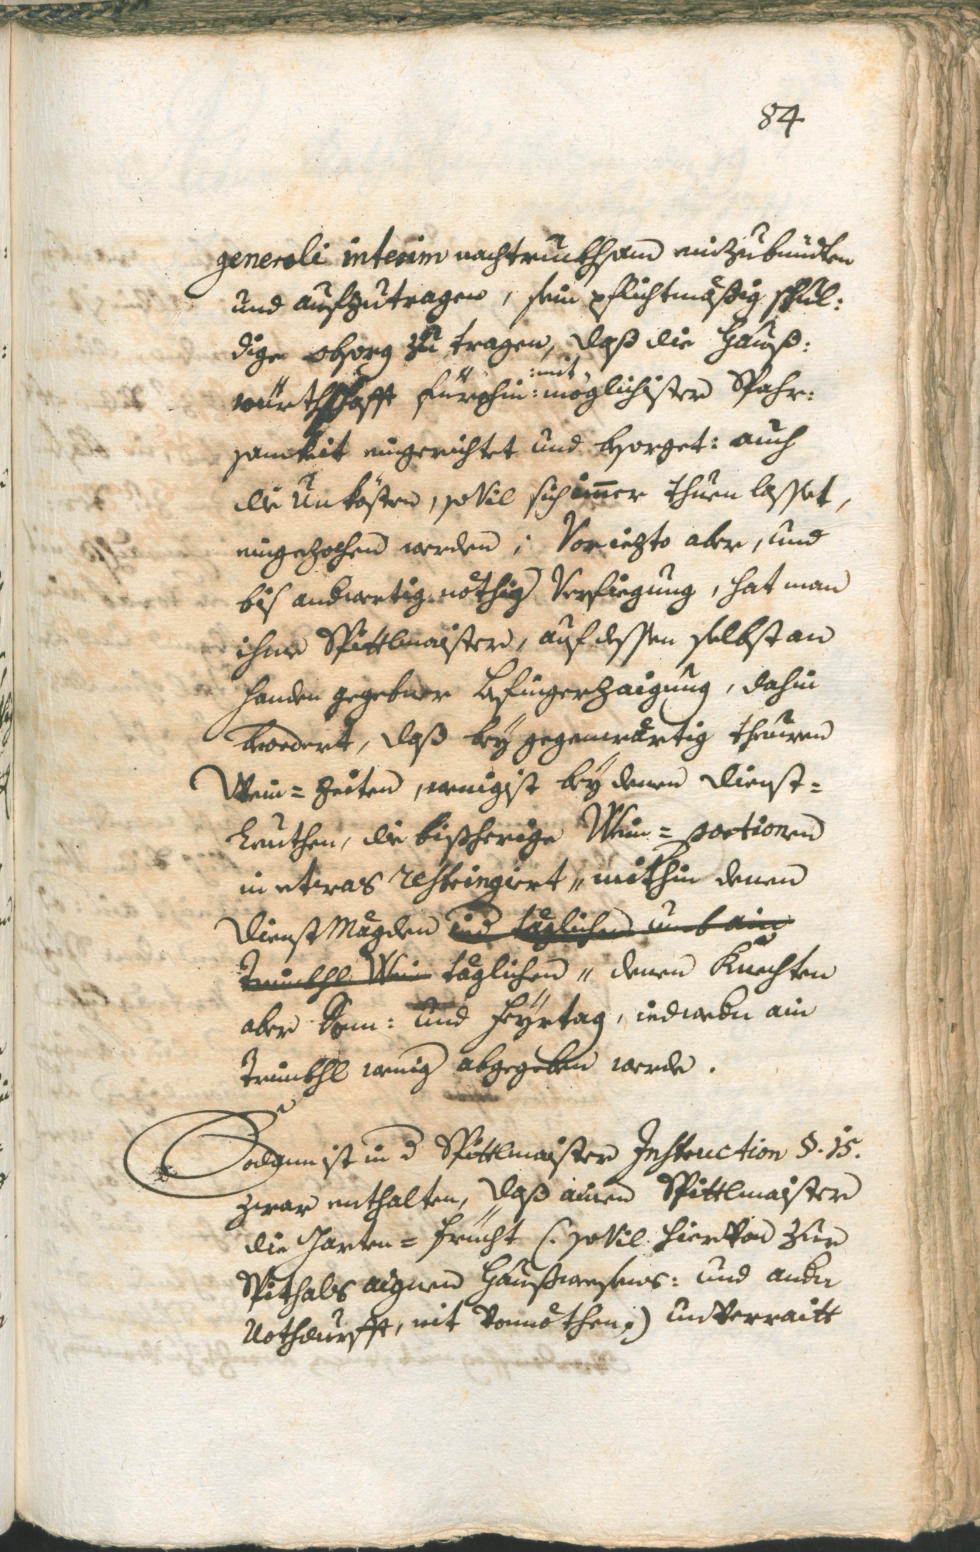 84
generali interim nachtruckhsam einzubündten
und aufzutragen, sein pflichtmäßig schul:
dige obsorg zu tragen, daß die Hauß:
würthschafft fürohin :mit: möglichister Spahr:
samkeit eingerichtet und besorget: auch
die Unkösten, sovil sich imer thuen lasset,
eingezochen werden; Vor iezto aber, und
bis anderwertig nöthig Verfiegung, hat man
ihme Spittlmaister, auf dessen selbst an
handen gegebner, dahin
beordert, daß bey gegenwärtig theuren
Wein= Zeiten, wenigist bey denen Dienst=
Leuthen, die bißherige Wein=portionen
in etwas restringiert, mithin denen
Dienst Mägden täglichen umb ain
Trünckhl Wein täglichen, denen Knechten
aber Son: und Feyrtag, iedweden ain
Trünckhl wenig abgegeben werde.
Sodann ist in d Spittlmaister Instruction §. 15.
zwar enthalten, daß ainem Spittlmaister
die Garten=frücht (: sovil hiervon zur
Spithals aignen Haußwesens: und ander
Nothdurfft, nit vonnöthen :) unverraitt